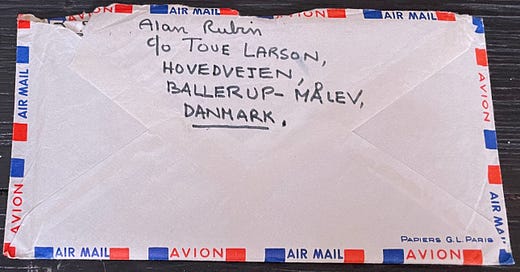 AIR MAIL AVION AIR MAIL AVION
Alan Rubin
c/o TOVE LARSON,
HOVEDVEJEN,
BALLERUP - MÅLEV,
DANMARK.
AIR MAIL
AVION
AVION
AIR MAIL
PAPIERS G.L. PARIS
AIR MAIL AVION AIR MAIL AVION